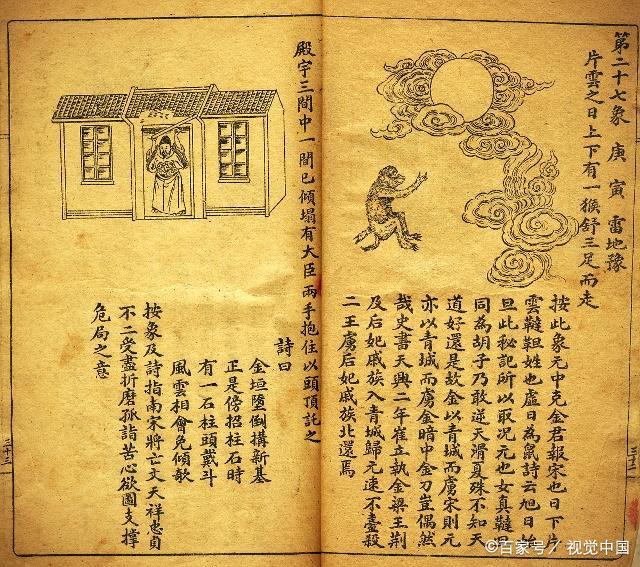 第二十七象 庚寅 雷地豫
片雲之日上下有一猴舒三足而走
按此象元中克金君報宋也日下片
雲韃靼姓也虛日為氣詩云旭日始
旦此秘記所以取况元也女真韃靼
同為胡子乃敢逆天滑夏殊不知天
道好還是故金以青城而虜宋則元
亦以青城而虜金暗中金刀豈偶然
哉史書天興二年崔立執金梁王荆
及后妃戚族入青城歸元速不臺殺
二王虜后妃戚族北還焉
殿宇三間中一間已傾塌有大臣兩手抱住以頭頂託之
詩曰
金垣墮倒搆新基
正是傍招柱石時
有一石柱頭戴斗
風雲相會免傾欹
按象及詩指南宋將亡文天祥忠貞
不二受盡折磨孤詣苦心欲圖支撐
危局之意
三十三
©百家号／视觉中国